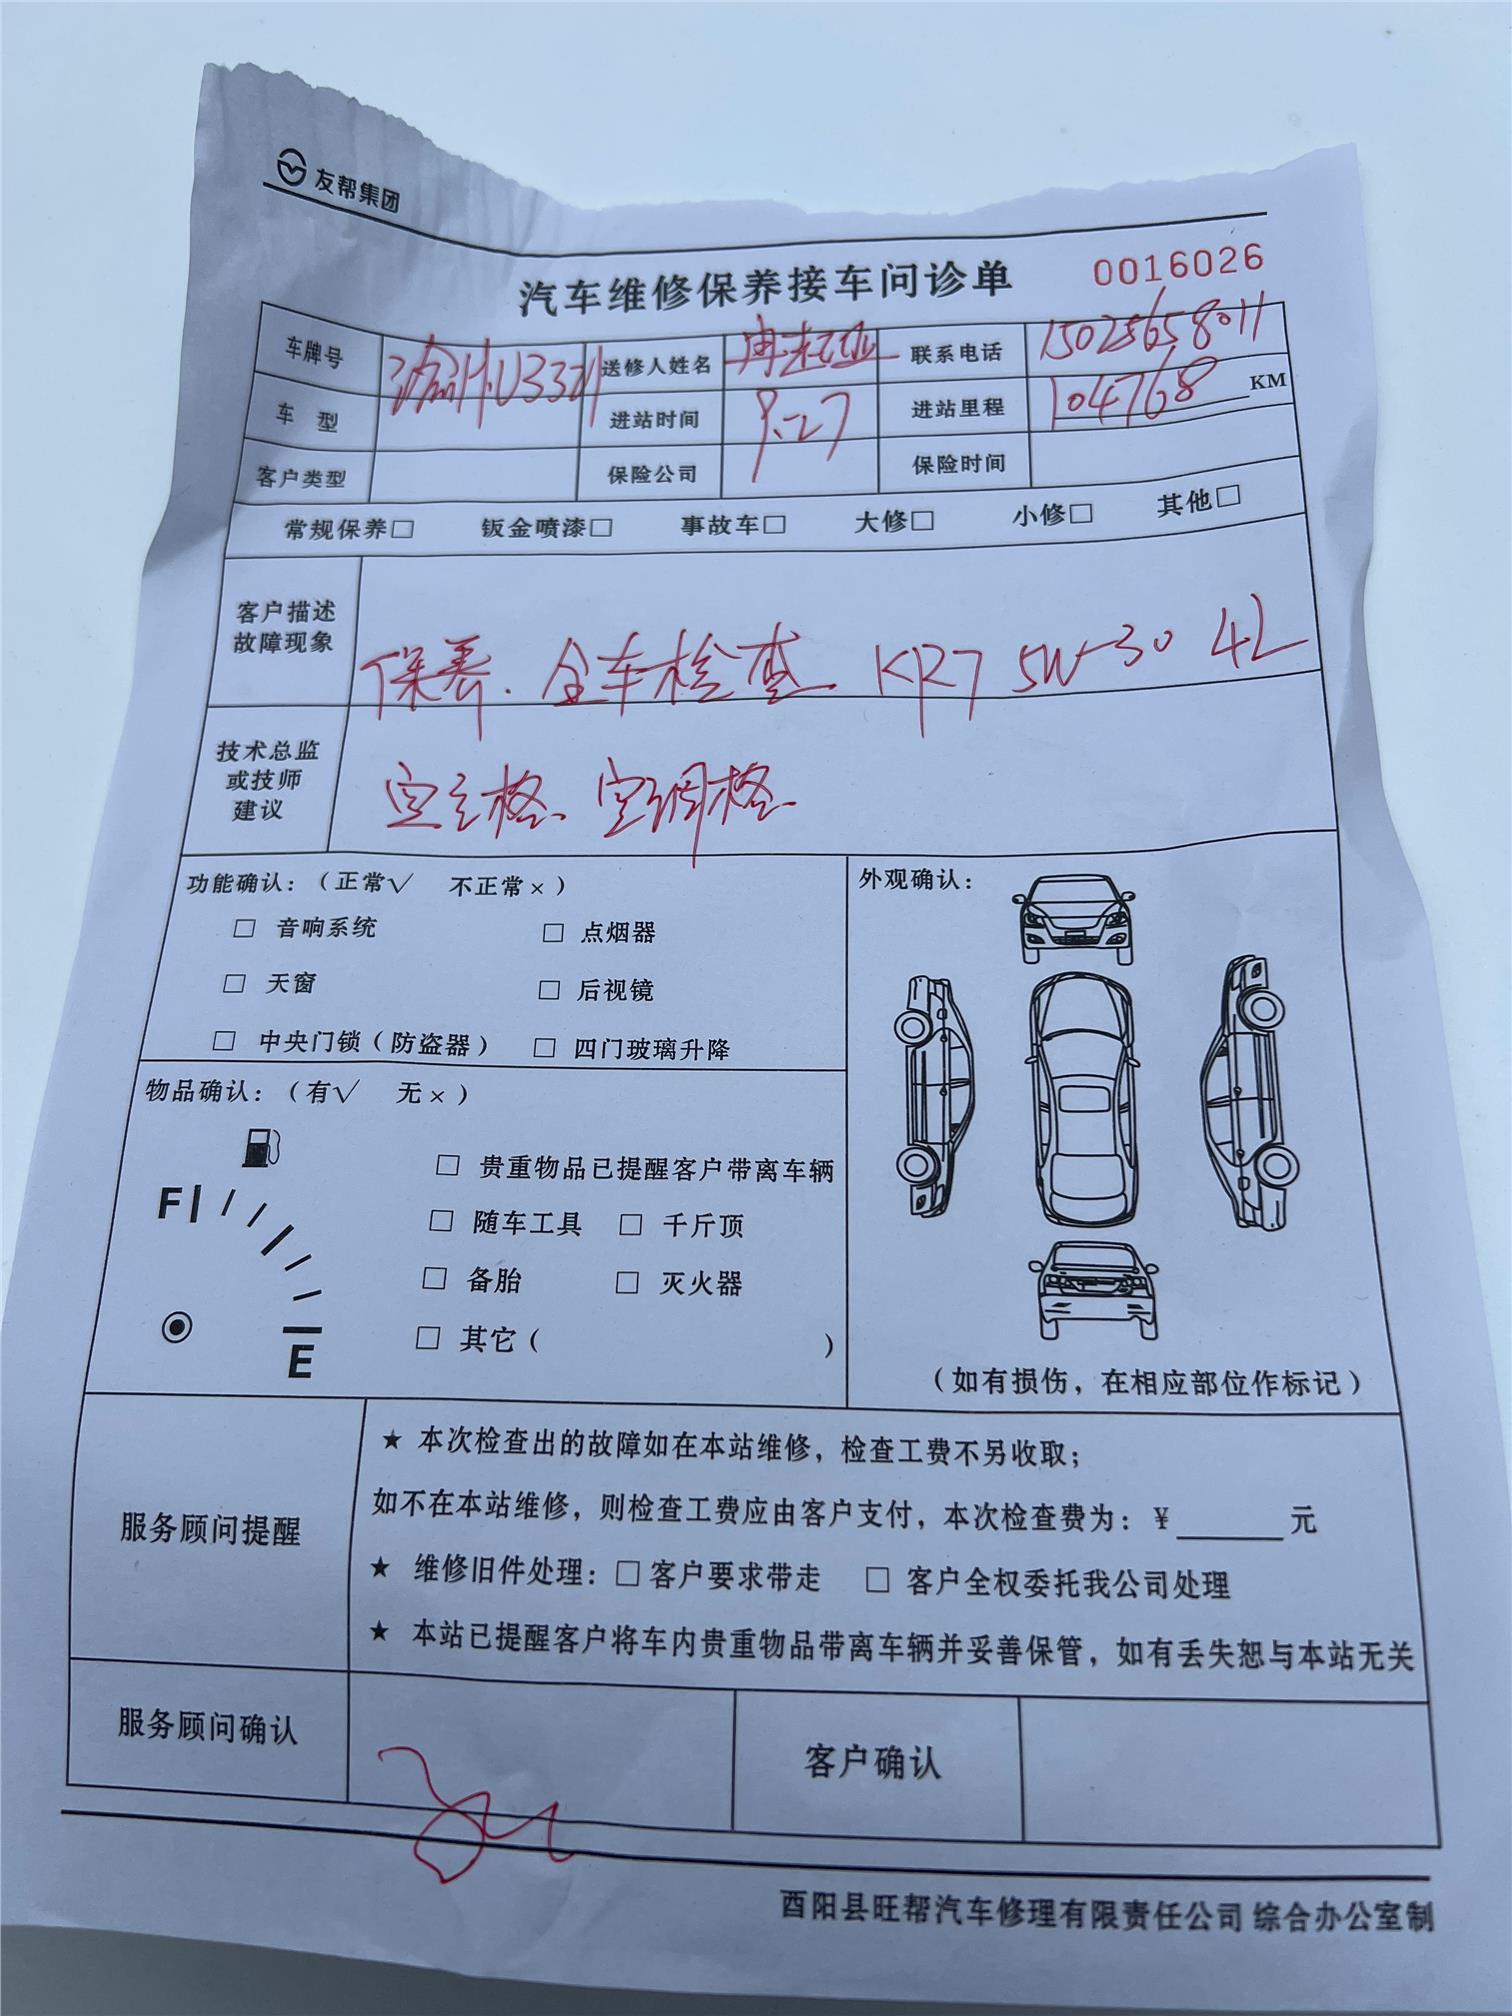 友帮集团
汽车维修保养接车问诊单 0016026
车牌号 送修人姓名 冉 联系电话 15025658011
车 型 进站时间 9.27 进站里程 104768 KM
客户类型 保险公司 保险时间
常规保养□ 钣金喷漆□ 事故车□ 大修□ 小修□ 其他□
客户描述
故障现象
保养. 全车检查 KR7 5W-30 4L
技术总监
或技师
建议
空调格
功能确认:(正常√ 不正常×)
□ 音响系统 □ 点烟器
□ 天窗 □ 后视镜
□ 中央门锁(防盗器) □ 四门玻璃升降
外观确认:
(如有损伤,在相应部位作标记)
物品确认:(有√ 无×)
F
E
□ 贵重物品已提醒客户带离车辆
□ 随车工具 □ 千斤顶
□ 备胎 □ 灭火器
□ 其它( )
服务顾问提醒
★ 本次检查出的故障如在本站维修,检查工费不另收取;
如不在本站维修,则检查工费应由客户支付,本次检查费为:¥______元
★ 维修旧件处理:□ 客户要求带走 □ 客户全权委托我公司处理
★ 本站已提醒客户将车内贵重物品带离车辆并妥善保管,如有丢失恕与本站无关
服务顾问确认 客户确认
酉阳县旺帮汽车修理有限责任公司 综合办公室制